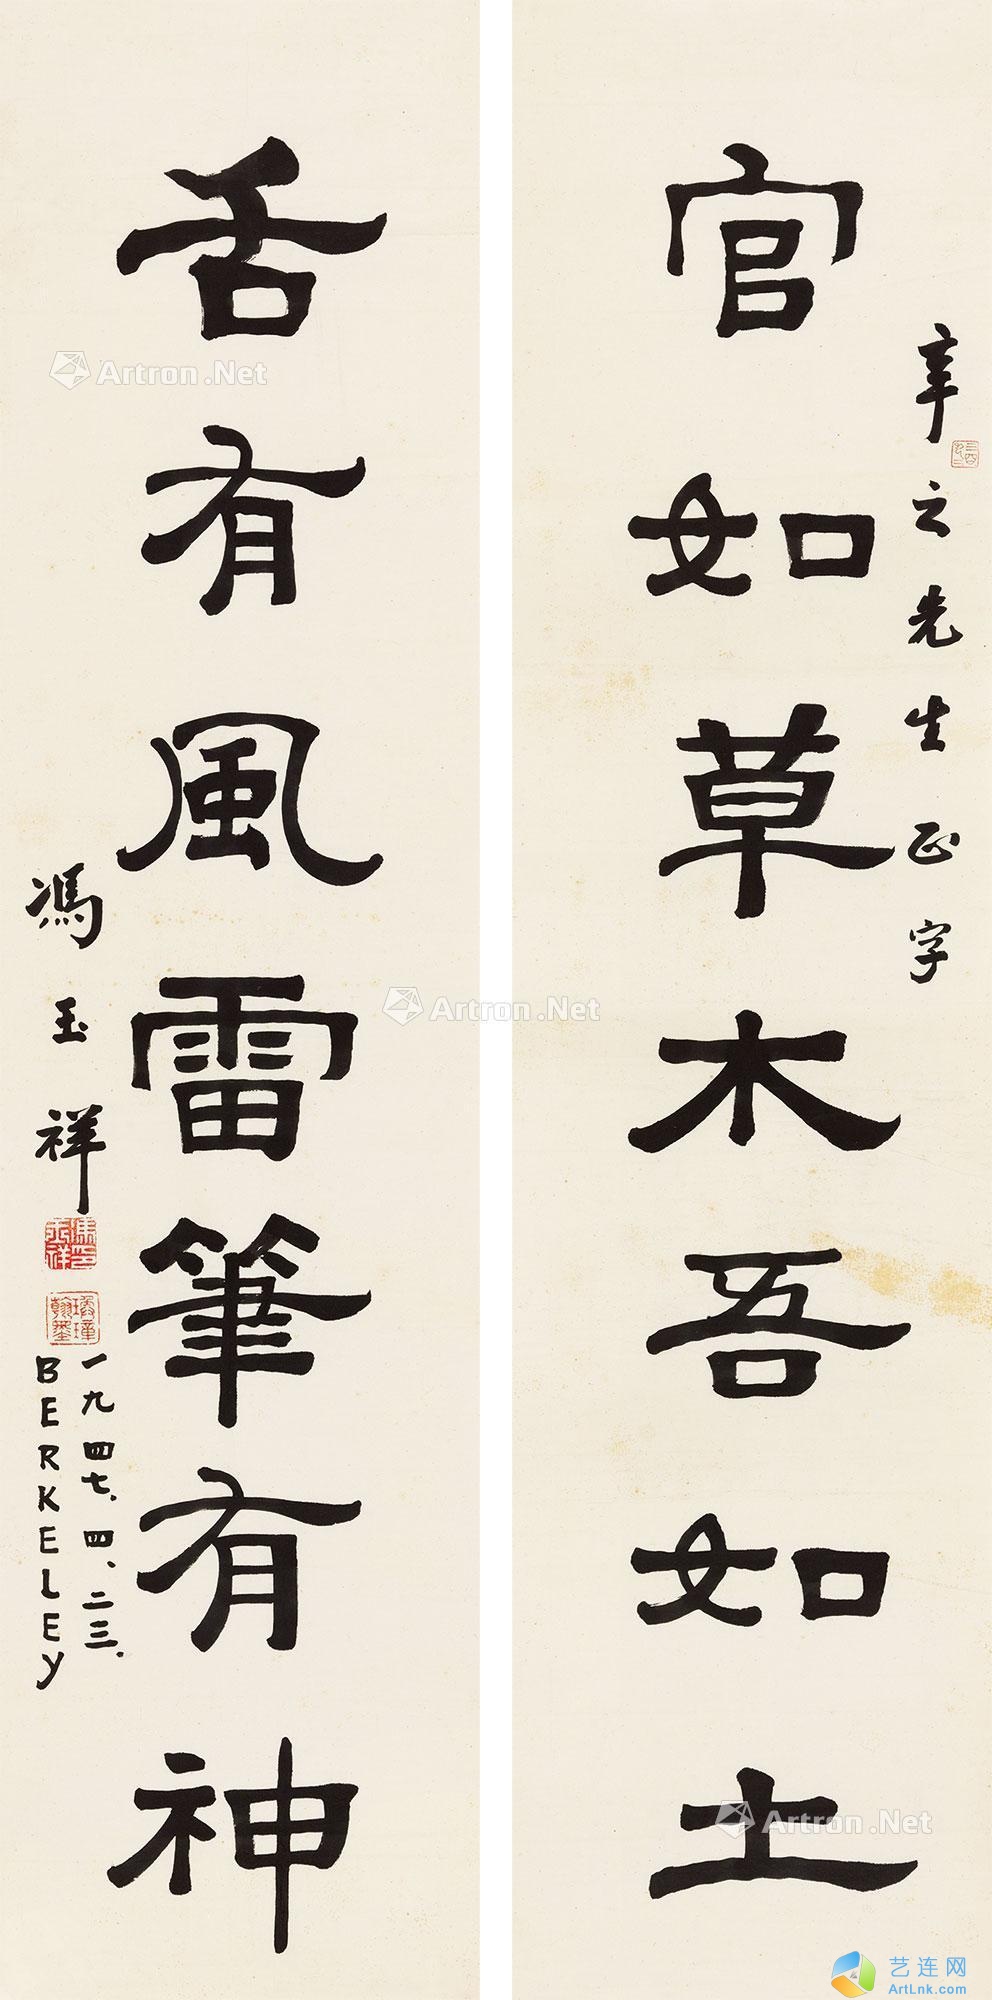 辛之先生正字
官如草木吾如土
舌有風雷筆有神
馮玉祥
一九四七、四、二三.
BERKELEY
Artron.Net
Artron.Net
Artron.Net
艺连网
ArtLnk.com